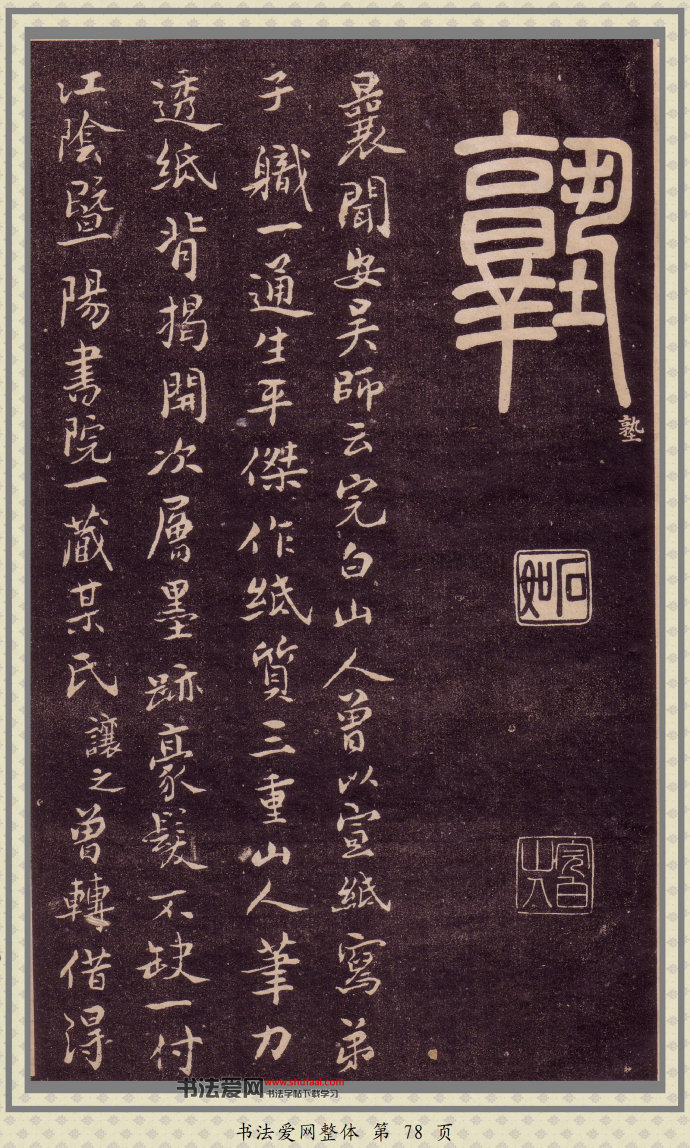 塾
塾
石如
完白山人
曩聞安吴師云完白山人曾以宣紙寫弟
子職一通生平傑作紙質三重山人筆力
透紙背揭開次層墨跡豪髮不缺一付
江陰暨陽書院一藏某氏讓之曾轉借得
书法爱网 www.shufaai.com
书法字帖下载学习
书法爱网整体 第 78 页